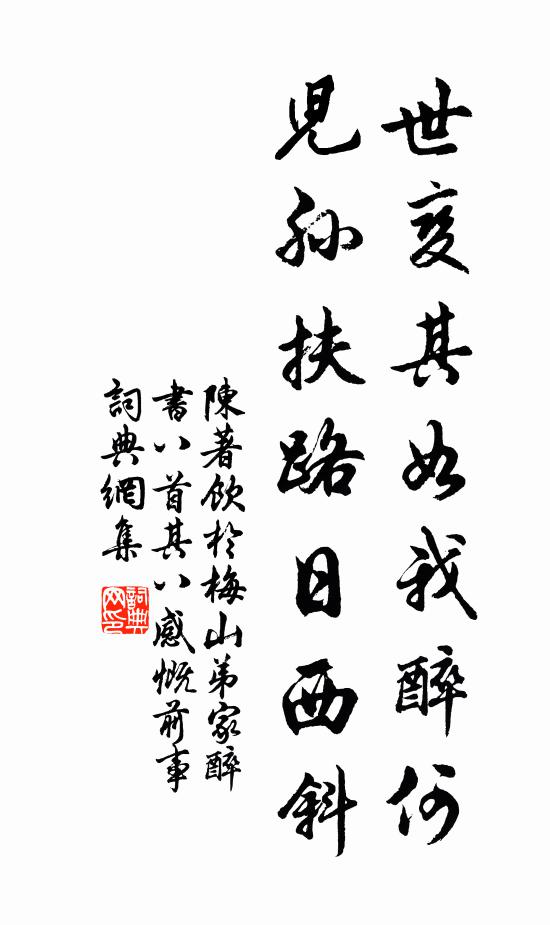 世变其如我醉何
兒孫扶路日西斜
陳著飲於梅山弟家醉
書八首其八感慨前事
詞典網集
詞典網印